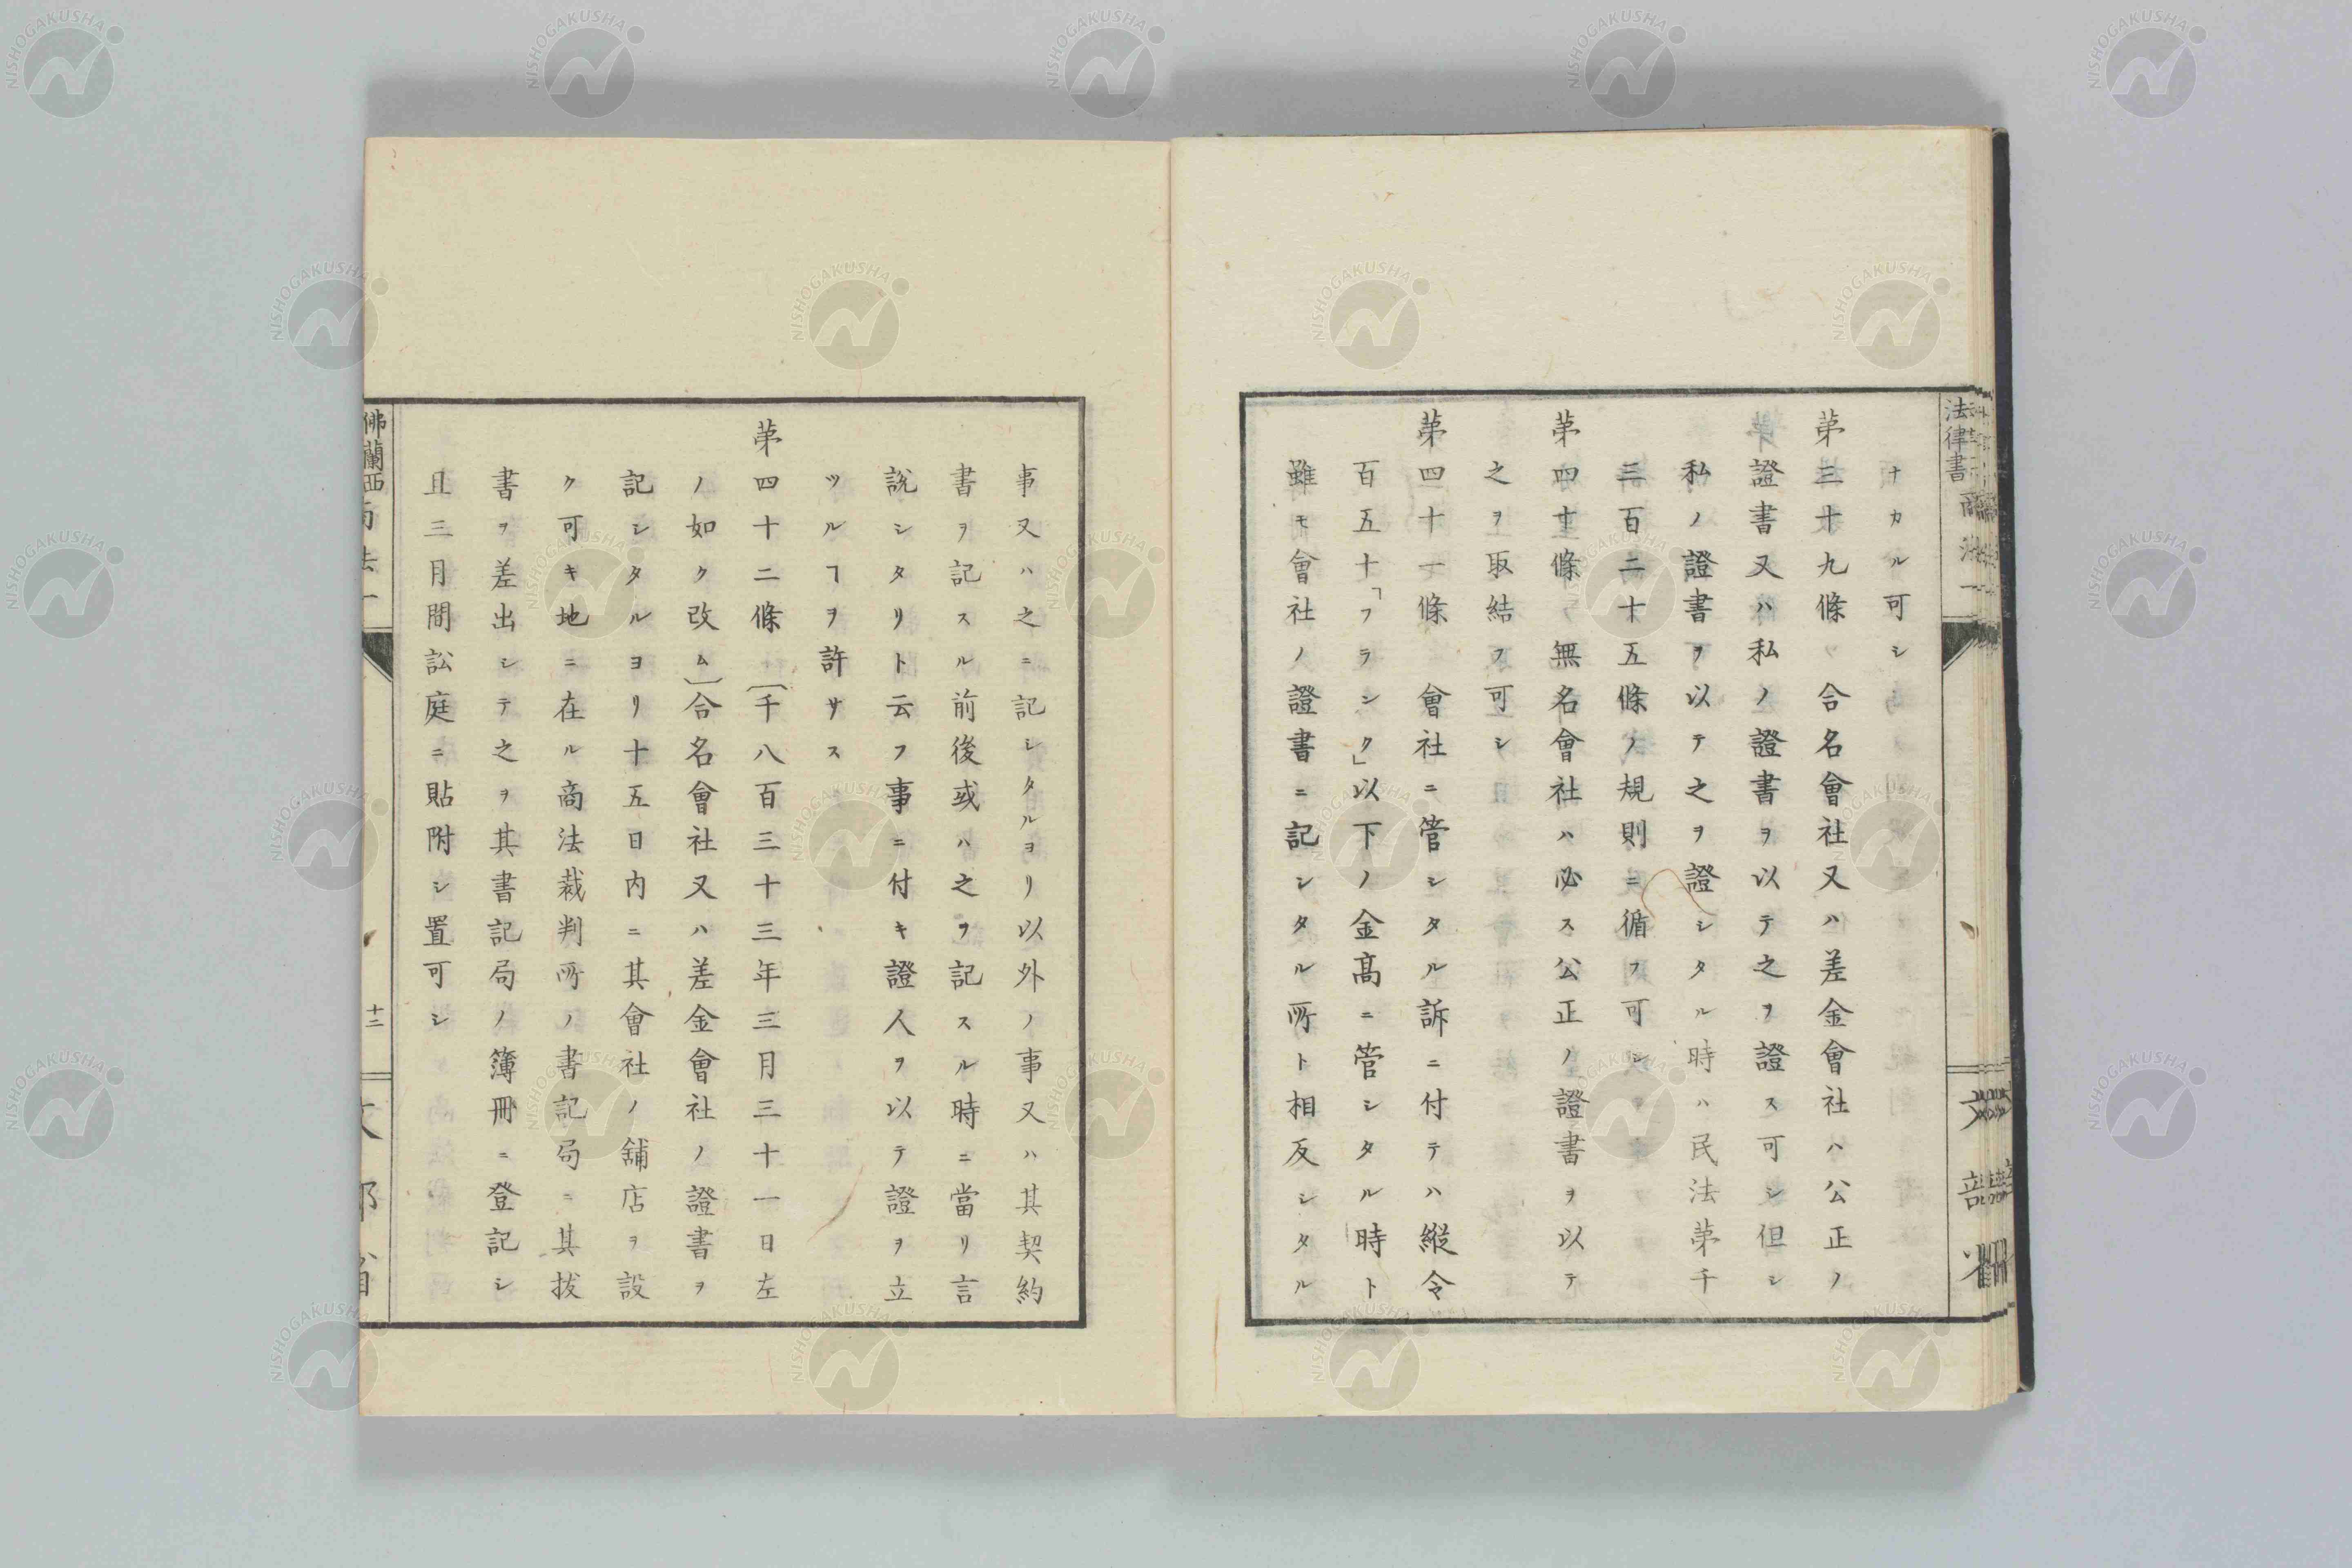 ナカル可シ
第三十九條 合名會社又ハ差金會社ハ公正ノ
證書又ハ私ノ證書ヲ以テ之ヲ證ス可シ但シ
私ノ證書ヲ以テ之ヲ證シタル時ハ民法第千
三百二十五條ノ規則ニ循フ可シ
第四十條 無名會社ハ必ス公正ノ證書ヲ以テ
之ヲ取結フ可シ
第四十一條 會社ニ管シタル訴ニ付テハ縱令
百五十「フランク」以下ノ金高ニ管シタル時ト
雖モ會社ノ證書ニ記シタル所ト相反シタル
事又ハ之ニ記シタルヨリ以外ノ事又ハ其契約
書ヲ記スル前後或ハ之ヲ記スル時ニ當リ言
説シタリト云フ事ニ付キ證人ヲ以テ證ヲ立
ツルヿヲ許サス
第四十二條〔千八百三十三年三月三十一日左
ノ如ク改ム〕合名會社又ハ差金會社ノ證書ヲ
記シタルヨリ十五日内ニ其會社ノ舖店ヲ設
ク可キ地ニ在ル商法裁判所ノ書記局ニ其拔
書ヲ差出シテ之ヲ其書記局ノ簿冊ニ登記シ
且三月間訟庭ニ貼附シ置可シ
佛蘭西
十二
法律書
NISHOGAKUSHA